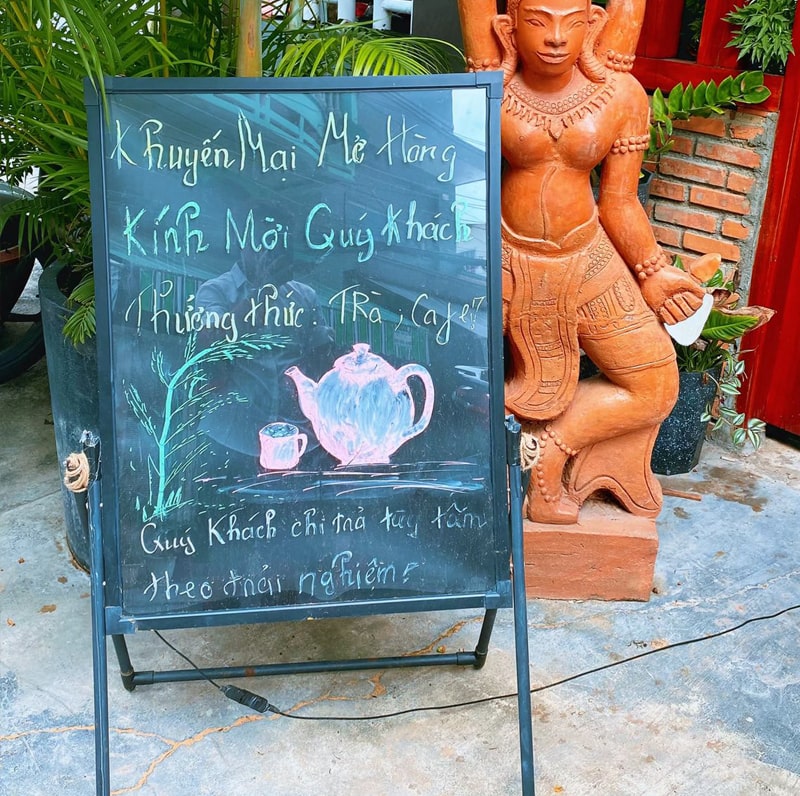 Khuyến Mại Mở Hàng
Kính Mời Quý Khách
Thưởng thức: Trà, Cafe!
Quý Khách chi trả tùy tâm
theo trải nghiệm!